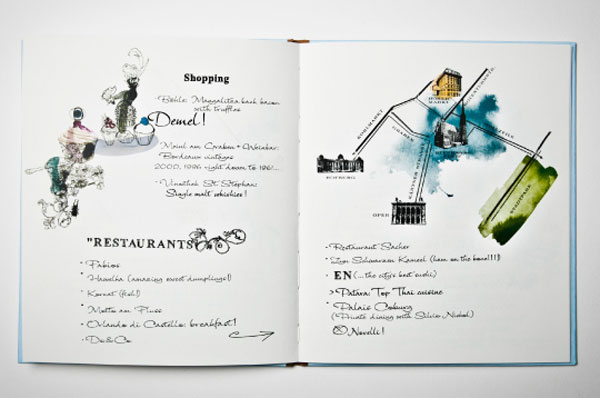 Shopping
Böhle: Mangalitza back bacon
with truffles
Demel!
Meinl am Graben + Weinbar:
Bordeaux vintages
2000, 1996 right down to 1961...
Vinothek St. Stephan:
Single malt whiskies!
"RESTAURANTS
Fabios
Hawelka (amazing sweet dumplings!)
Kornat (fish!)
Motto am Fluss
Orlando di Castello: breakfast!
Do & Co
KOHLMARKT
GRABEN
KÄRNTNER STRASSE
OPER
STADTPARK
Restaurant Sacher
Zum Schwarzen Kameel (ham on the bone!!!)
EN (... the city's best sushi)
> Patara: Top Thai cuisine
Palais Coburg
(Private dining with Silvio Nickol)
Novelli!